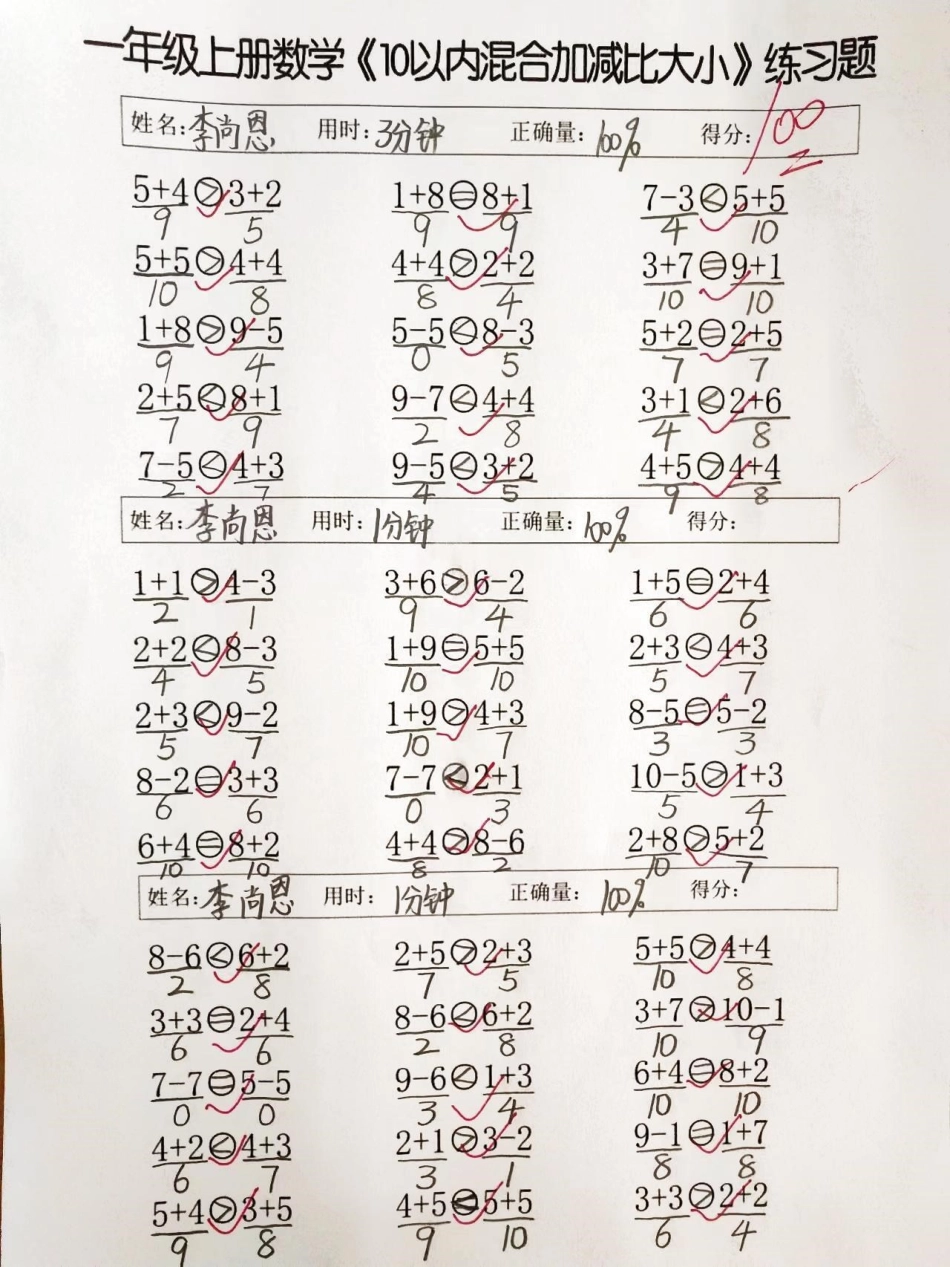 一年级上册数学《10以内混合加减比大小》练习题
姓名:李尚恩 用时:3分钟 正确量:100% 得分:100
5+4>3+2 1+8=8+1 7-3<5+5
9 5 9 9 4 10
5+5>4+4 4+4>2+2 3+7=9+1
10 8 8 4 10 10
1+8>9-5 5-5<8-3 5+2=2+5
9 4 0 5 7 7
2+5<8+1 9-7<4+4 3+1<2+6
7 9 2 8 4 8
7-5<4+3 9-5<3+2 4+5>4+4
2 7 4 5 9 8
姓名:李尚恩 用时:1分钟 正确量:100% 得分:
1+1>4-3 3+6>6-2 1+5=2+4
2 1 9 4 6 6
2+2<8-3 1+9=5+5 2+3<4+3
4 5 10 10 5 7
2+3<9-2 1+9>4+3 8-5=5-2
5 7 10 7 3 3
8-2=3+3 7-7<2+1 10-5>1+3
6 6 0 3 5 4
6+4=8+2 4+4>8-6 2+8>5+2
10 10 8 2 10 7
姓名:李尚恩 用时:1分钟 正确量:100% 得分:
8-6<6+2 2+5>2+3 5+5>4+4
2 8 7 5 10 8
3+3=2+4 8-6<6+2 3+7>10-1
6 6 2 8 10 9
7-7=5-5 9-6<1+3 6+4=8+2
0 0 3 4 10 10
4+2<4+3 2+1>3-2 9-1=1+7
6 7 3 1 8 8
5+4>3+5 4+5<5+5 3+3>2+2
9 8 9 10 6 4